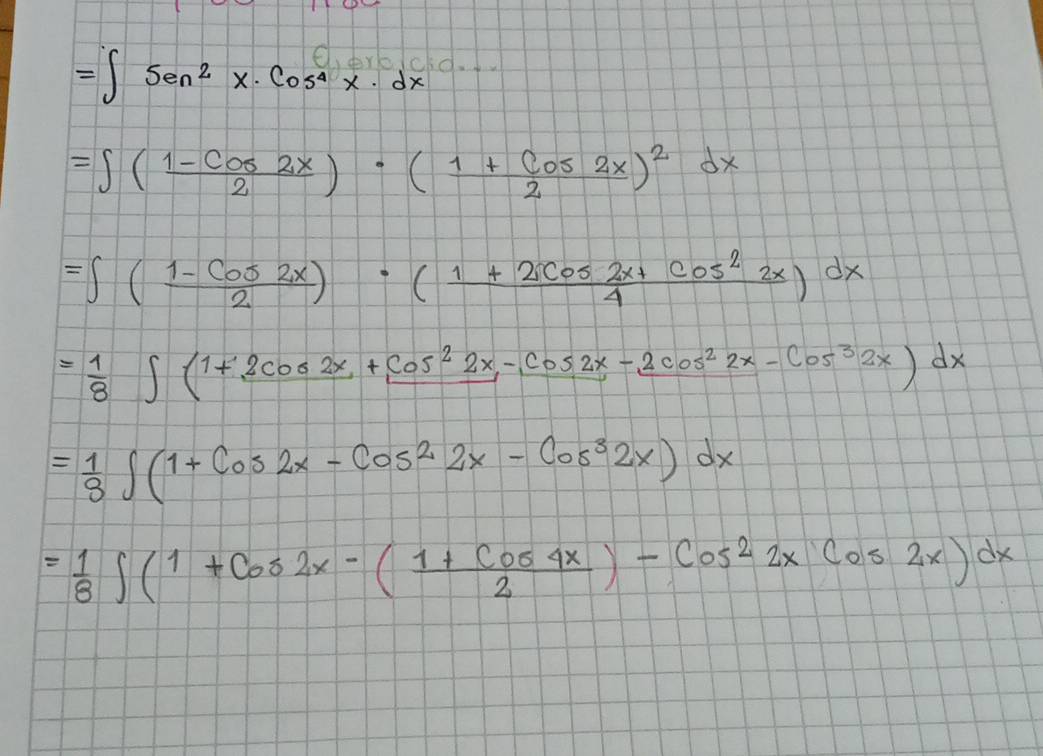 Ejercicio...
= ∫ Sen² x · Cos⁴ x · dx
= ∫ ( (1 - Cos 2x) / 2 ) · ( (1 + Cos 2x) / 2 )² dx
= ∫ ( (1 - Cos 2x) / 2 ) · ( (1 + 2Cos 2x + Cos² 2x) / 4 ) dx
= 1/8 ∫ (1 + 2cos 2x + Cos² 2x - Cos 2x - 2cos² 2x - Cos³ 2x) dx
= 1/8 ∫ (1 + Cos 2x - Cos² 2x - Cos³ 2x) dx
= 1/8 ∫ (1 + Cos 2x - ( (1 + Cos 4x) / 2 ) - Cos² 2x Cos 2x) dx